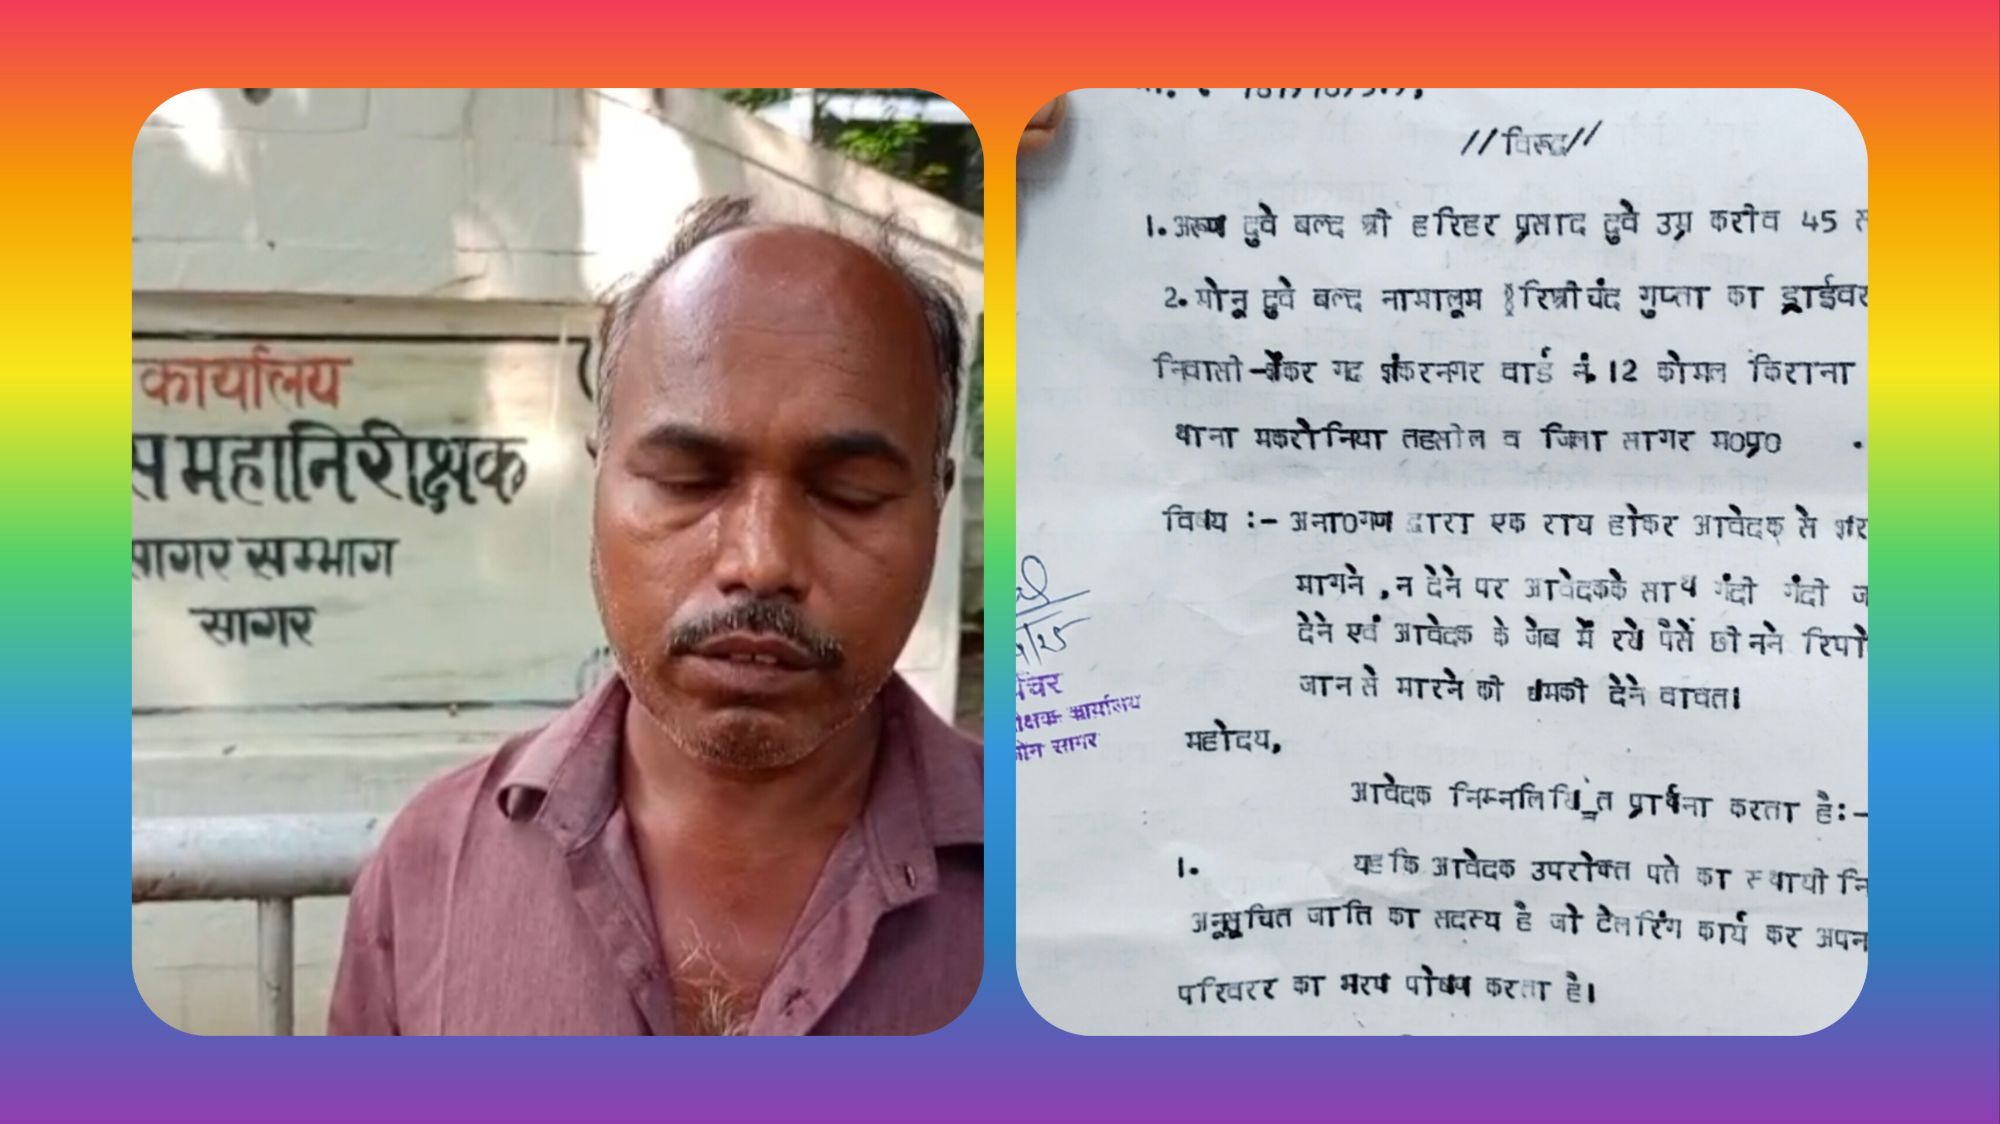 कार्यालय
महानिरीक्षक
सागर सम्भाग
सागर
//विरूद्ध//
1. अरूण दुवे बल्द श्री हरिहर प्रसाद दुवे उम्र करीव 45
2. मोनू दुवे बल्द नामालूम श्रीचंद गुप्ता का ड्राईवर
निवासी- गढ शंकरनगर वार्ड नं. 12 कोमल किराना
थाना मकरोनिया तहसील व जिला सागर म0प्र0
विषय :- अना0गण द्वारा एक राय होकर आवेदक से
मागने , न देने पर आवेदकके साथ गंदी गंदी
देने एवं आवेदक के जेब में रखे पैसे छीनने
जान से मारने की धमकी देने वावत।
कार्यालय
सागर
महोदय,
आवेदक निम्नलिखित प्रार्थना करता है:-
1. यह कि आवेदक उपरोक्त पते का स्थायी
अनुसूचित जाति का सदस्य है जो टेलरिंग कार्य कर
परिवरर का भरण पोषण करता है।